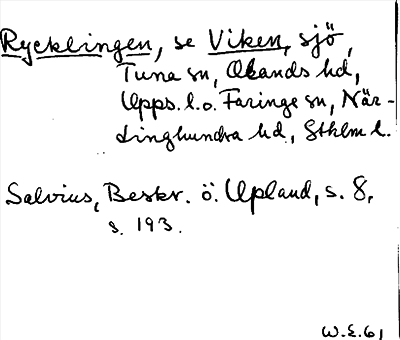 Rycklingen, se Viken, sjö,
Tuna sn, Olands hd,
Upps. l. o. Faringe sn, När-
dinghundra hd, Sthlm l.
Salvius, Beskr. ö. Upland, s. 8,
s. 193.
W.E.61